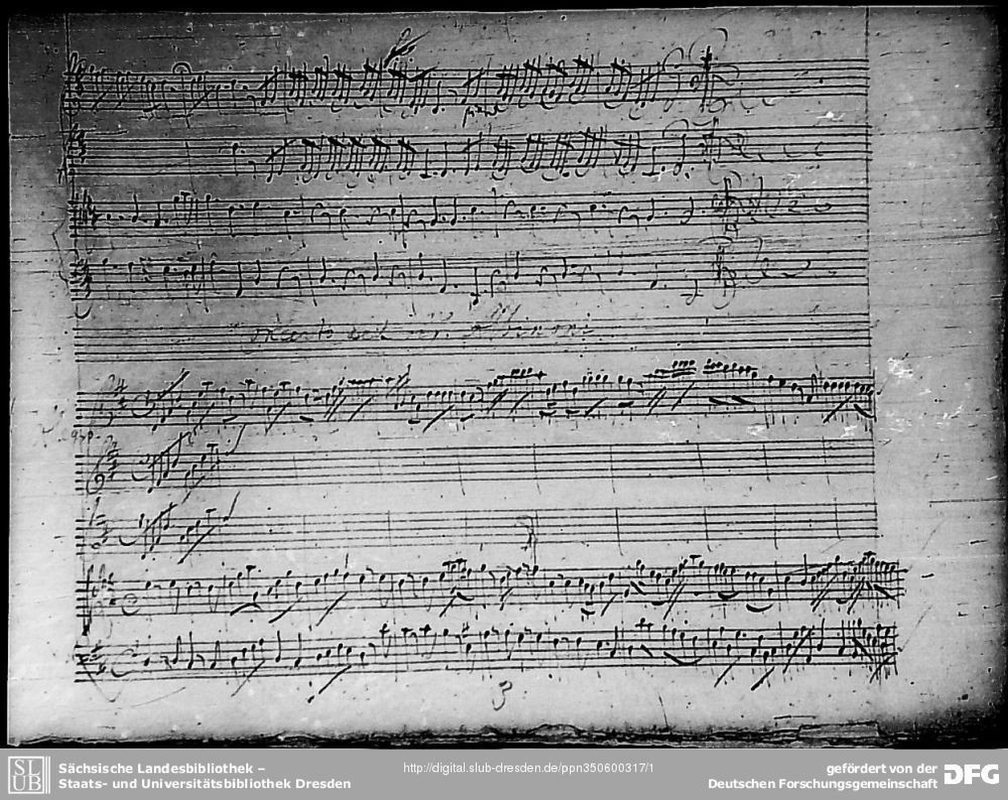 piano
Concerto del Sigr. Albinoni
3
SLUB
Sächsische Landesbibliothek –
Staats- und Universitätsbibliothek Dresden
http://digital.slub-dresden.de/ppn350600317/1
gefördert von der
Deutschen Forschungsgemeinschaft
DFG